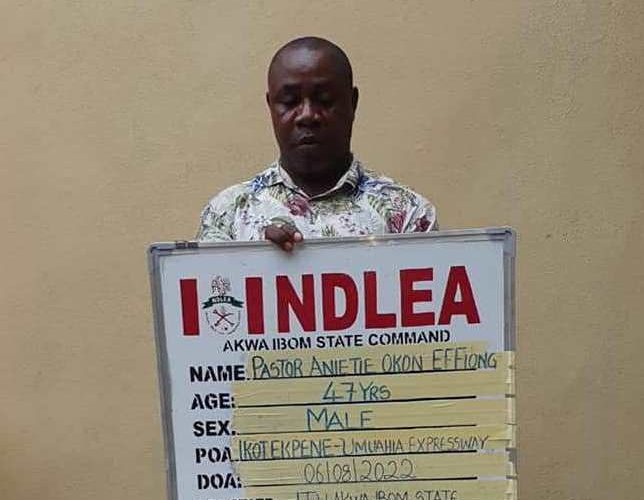 NDLEA
NDLEA
AKWA IBOM STATE COMMAND
NAME: PASTOR ANIETIE OKON EFFIONG
AGE: 47YRS
SEX: MALE
POA: IKOT EKPENE-UMUAHIA EXPRESSWAY
DOA: 06/08/2022
ITU, AKWA IBOM STATE